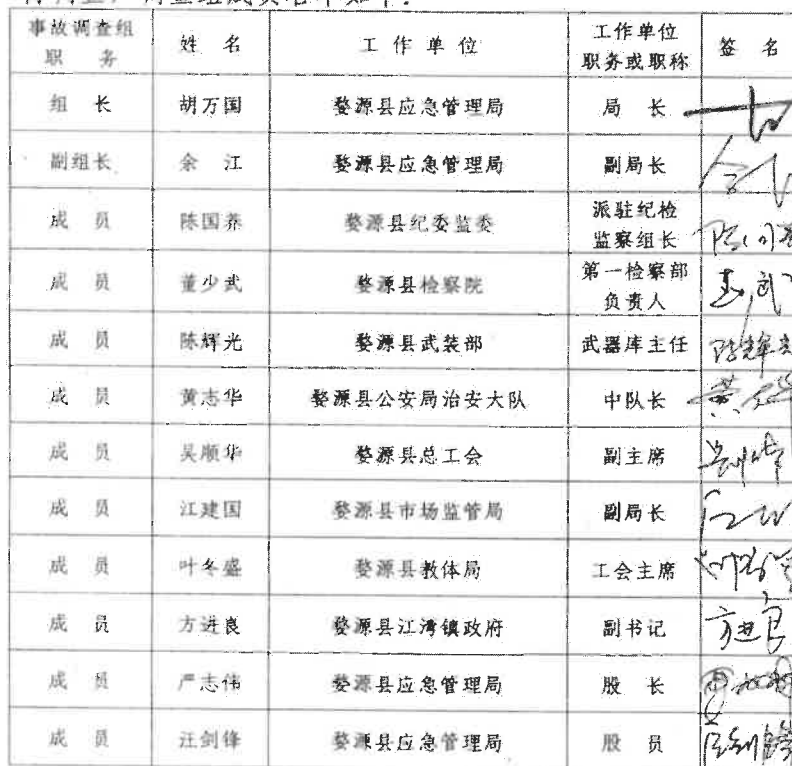 事故调查组
职 务
姓 名
工 作 单 位
工作单位
职务或职称
签 名
组 长 胡万国 婺源县应急管理局 局 长
副组长 余 江 婺源县应急管理局 副局长
成 员 陈国养 婺源县纪委监委 派驻纪检
监察组长
成 员 董少武 婺源县检察院 第一检察部
负责人
成 员 陈辉光 婺源县武装部 武器库主任 陈辉光
成 员 黄志华 婺源县公安局治安大队 中队长
成 员 吴顺华 婺源县总工会 副主席
成 员 江建国 婺源县市场监管局 副局长
成 员 叶冬盛 婺源县教体局 工会主席
成 员 方进良 婺源县江湾镇政府 副书记 方进良
成 员 严志伟 婺源县应急管理局 股 长
成 员 汪剑锋 婺源县应急管理局 股 员 汪剑锋